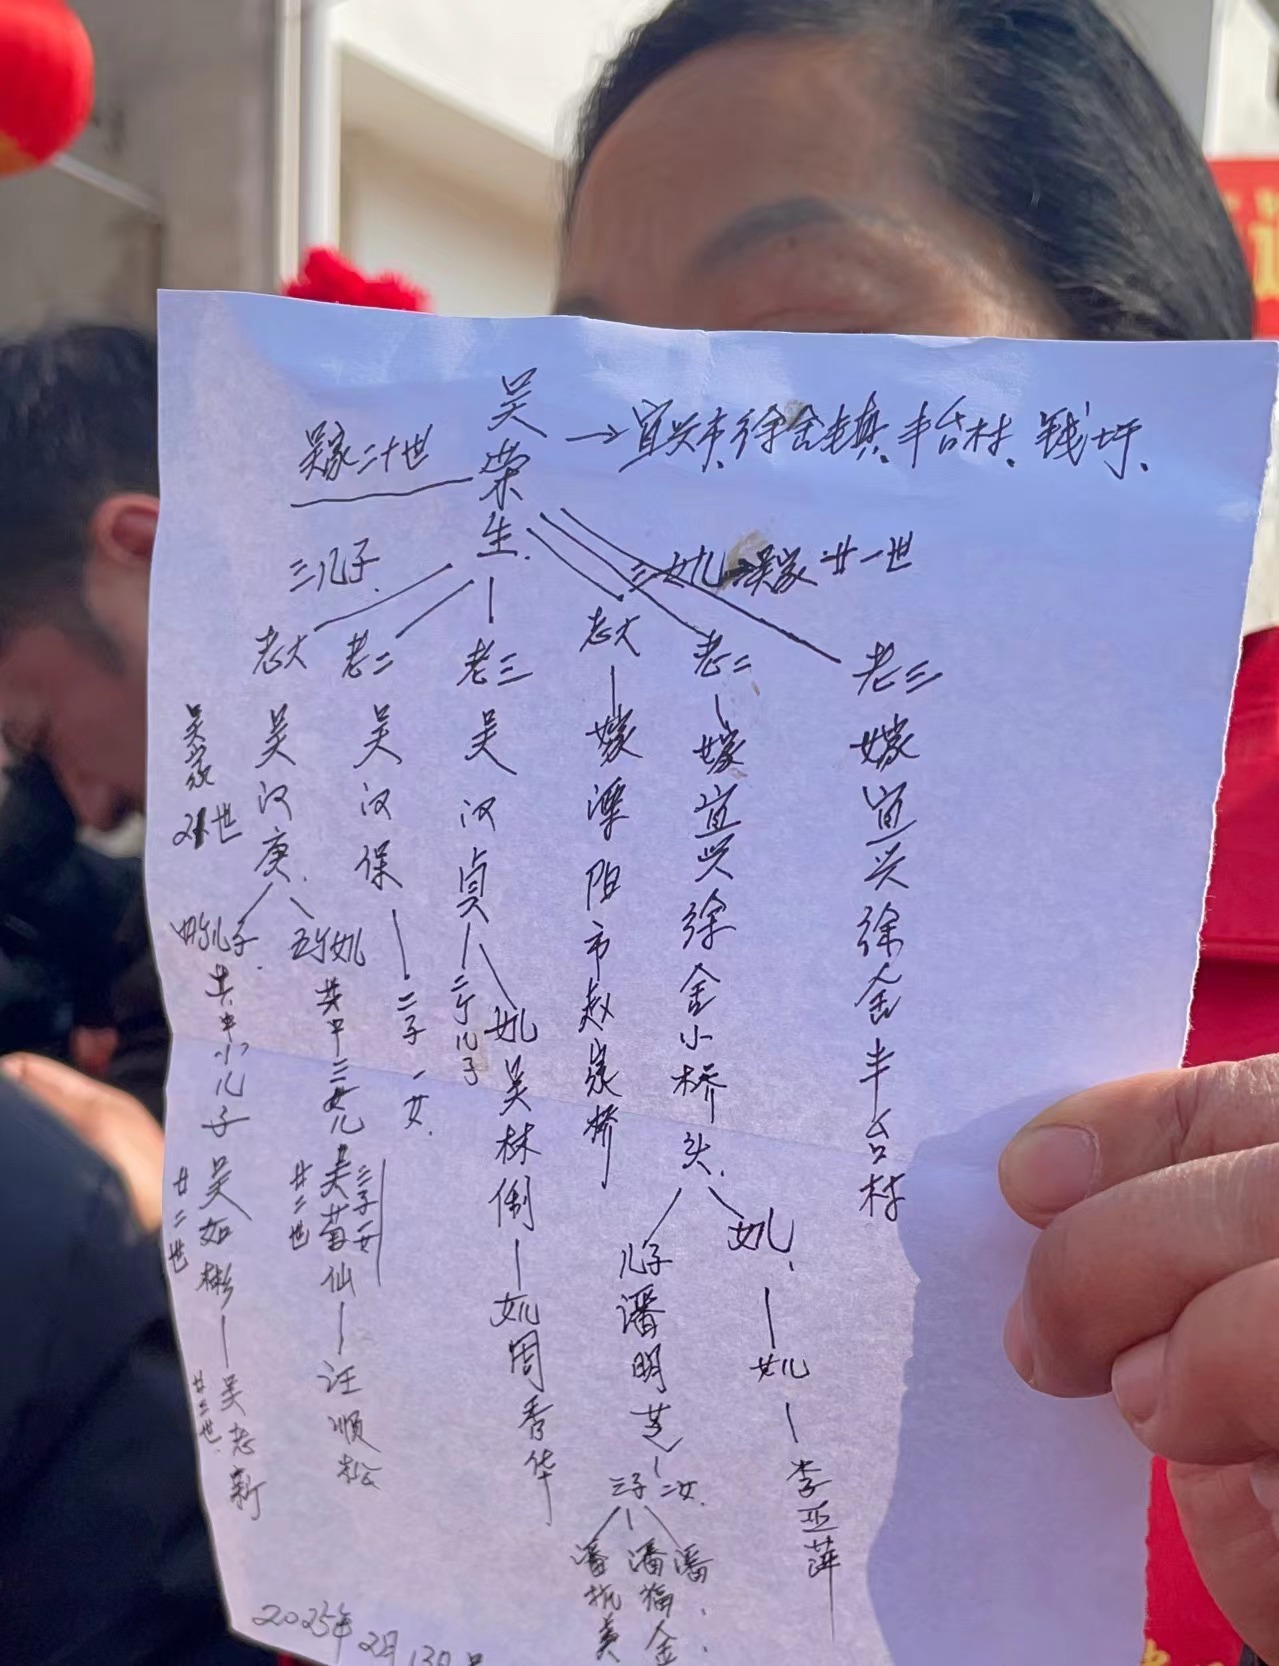 吴荣生.
→宜兴市.徐舍镇.丰台村.钱圩.
吴家二十世
三儿子.
三女儿
吴家廿一世
老大
老二
老三
老大
老二
老三
吴家21世
吴汉庚.
吴汉保
吴汉贞
嫁溧阳市赵家桥
嫁宜兴徐舍小桥头.
嫁宜兴徐舍丰台村
四个儿子.
五个女儿
二子一女.
二个儿子
女儿吴林俐
儿子潘明芝
女儿.
其中小儿子吴如彬
廿二世
其中三女儿吴菊仙
廿二世
二子一女
女儿周香华
女儿
李亚萍
三子二女.
吴志新
廿三世.
汪顺松
潘抗美
潘福金
潘.
2025年2月13日